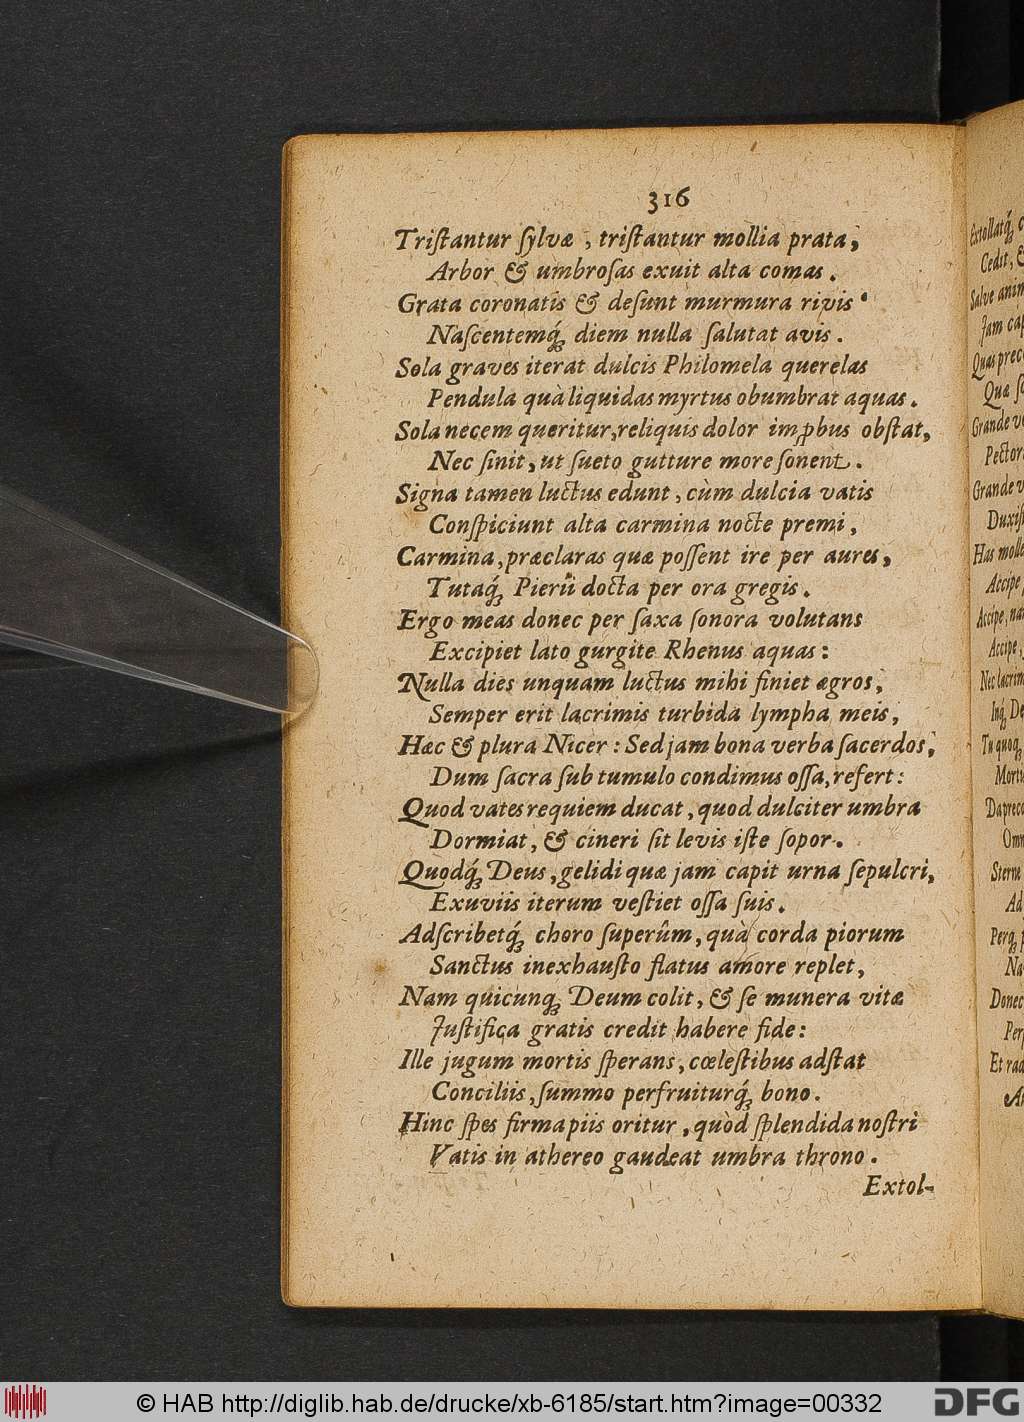 316
Triſtantur ſylvæ, triſtantur mollia prata,
Arbor & umbroſas exuit alta comas.
Grata coronatis & deſunt murmura rivis
Naſcentemq́; diem nulla ſalutat avis.
Sola graves iterat dulcis Philomela querelas
Pendula quà liquidas myrtus obumbrat aquas.
Sola necem queritur, reliquis dolor imꝓbus obſtat,
Nec ſinit, ut ſueto gutture more ſonent.
Signa tamen luctus edunt, cùm dulcia vatis
Conſpiciunt alta carmina nocte premi,
Carmina, præclaras quæ poſſent ire per aures,
Tutaq́; Pierii docta per ora gregis.
Ergo meas donec per ſaxa ſonora volutans
Excipiet lato gurgite Rhenus aquas:
Nulla dies unquam luctus mihi finiet ægros,
Semper erit lacrimis turbida lympha meis,
Hæc & plura Nicer: Sed jam bona verba ſacerdos,
Dum ſacra ſub tumulo condimus oſſa, refert:
Quod vates requiem ducat, quod dulciter umbra
Dormiat, & cineri ſit levis iſte ſopor.
Quodq́; Deus, gelidi quæ jam capit urna ſepulcri,
Exuviis iterum veſtiet oſſa ſuis.
Adſcribetq́; choro ſuperûm, quà corda piorum
Sanctus inexhauſto flatus amore replet,
Nam quicunq; Deum colit, & ſe munera vitæ
Juſtifica gratis credit habere fide:
Ille jugum mortis ſperans, cœleſtibus adſtat
Conciliis, ſummo perfruiturq́; bono.
Hinc ſpes firma piis oritur, quòd ſplendida noſtri
Vatis in æthereo gaudeat umbra throno.
Extol-
Extollatq́;
Cedit,
Salve
Jam
Quas
Quæ
Grande
Grande
Has
Accipe
Accipe,
Accipe,
Nec
Inq́;
Tu quoq;
Omn
Ad
Perq;
Donec
Et
© HAB http://diglib.hab.de/drucke/xb-6185/start.htm?image=00332
DFG